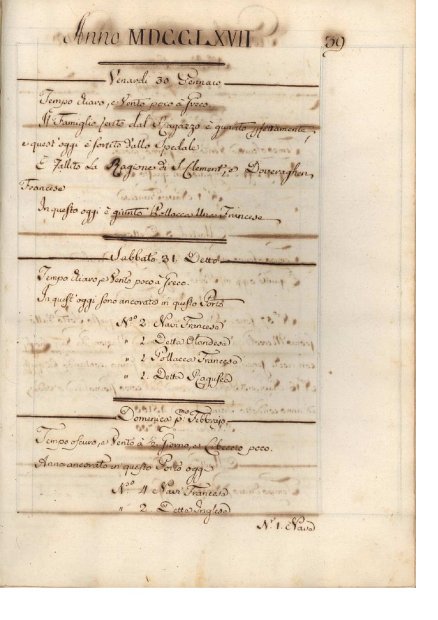 Anno MDCCLXVII
39
Venardi 30 Gennaro
Tempo chiaro, e Vento poco à Greco.
Il Famiglio ferito dal Ragazzo è guarito
e quest' oggi è sortito dallo Spedale
È fallito La Ragione di S. Clement, e
Francese
In questo oggi è giunta Pollacca Una Francese
Sabbato 31. Detto
Tempo chiaro, e Vento poco à Greco.
In quest' oggi sono ancorate in questo Porto
N.º 2 Navi Francese
" 1 Detta Olandese
" 1 Pollacca Francese
" 1. Detta Raguseo
Domenica p.mo Febbrajo
Tempo oscuro, e Vento à Giorno, e Libeccio poco.
Anno ancorato in questo Porto oggi
N.º 4 Navi Francese
" 2 Detta Inglese
N.º 1. Nave